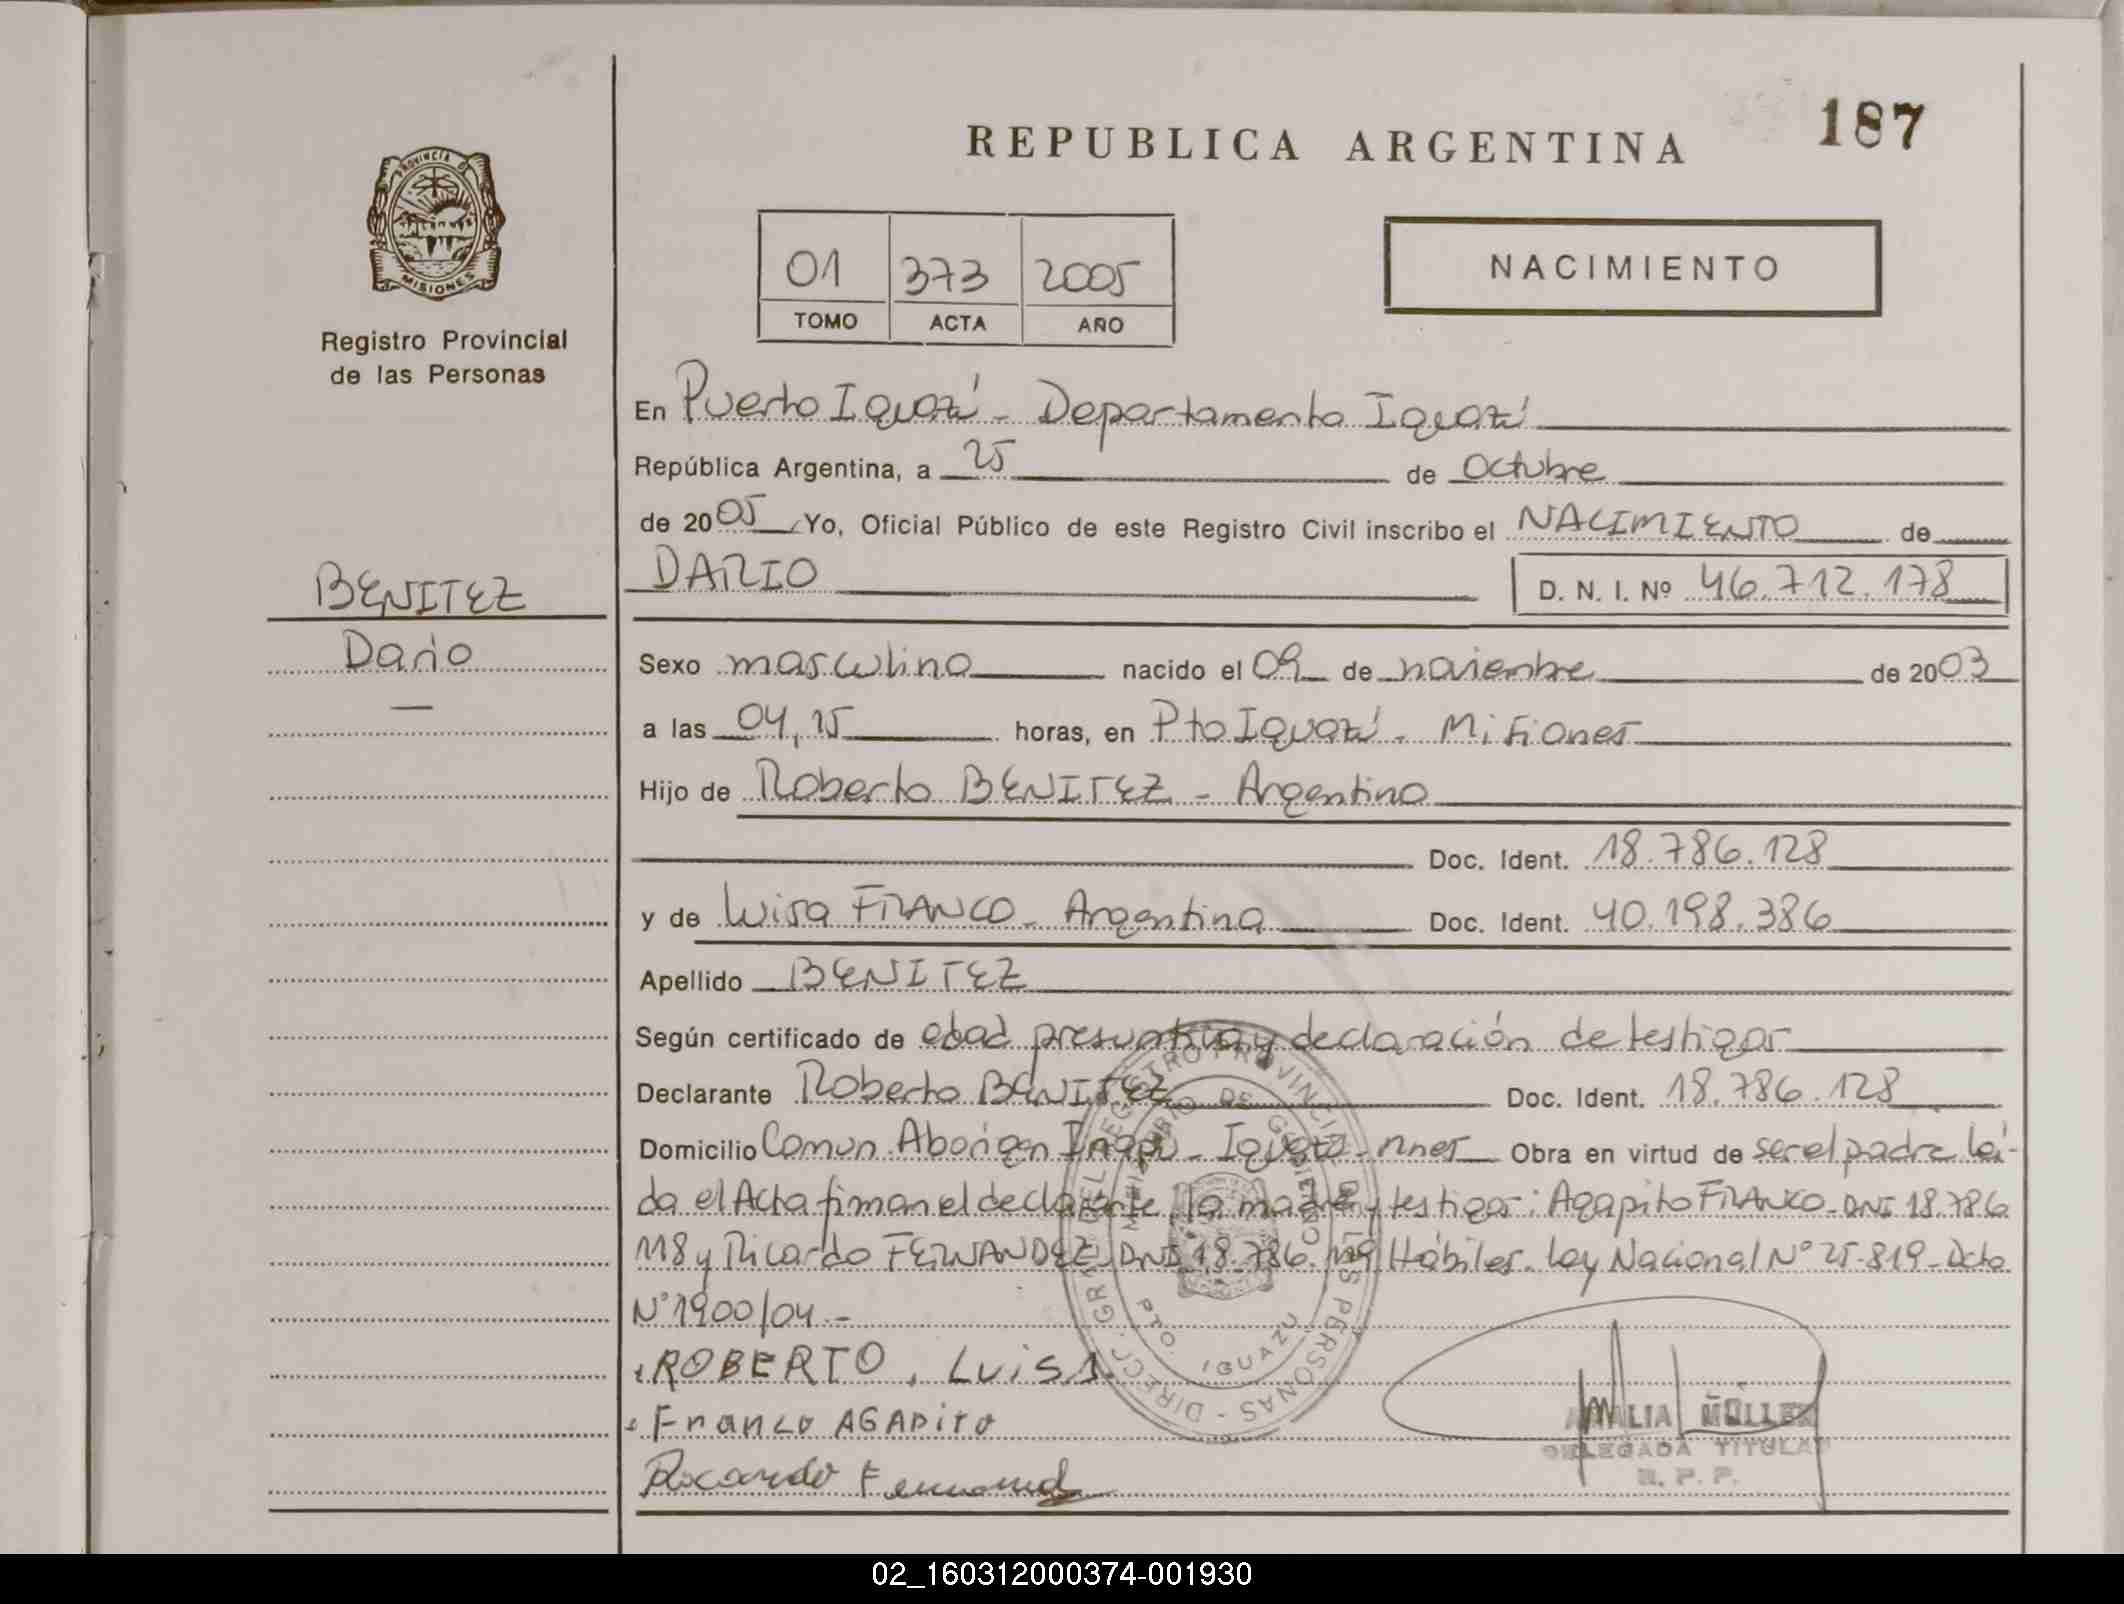 187
REPUBLICA ARGENTINA
PROVINCIA D
MISIONES
Registro Provincial
de las Personas
01 373 2005
TOMO ACTA AÑO
NACIMIENTO
En Puerto Iguazú - Departamento Iguazú
República Argentina, a 25 de Octubre
de 2005 Yo, Oficial Público de este Registro Civil inscribo el NACIMIENTO de
DARIO D. N. I. Nº 46.712.178
BENITEZ
Dario
Sexo masculino nacido el 09 de noviembre de 2003
a las 04,15 horas, en Pto Iguazú - Misiones
Hijo de Roberto BENITEZ - Argentino
Doc. Ident. 18.786.128
y de Luisa FRANCO - Argentina Doc. Ident. 40.198.386
Apellido BENITEZ
Según certificado de edad presuntiva y declaración de testigos
Declarante Roberto BENITEZ Doc. Ident. 18.786.128
Domicilio Comun. Aborigen - Iguazú - Mnes Obra en virtud de ser el padre leí-
da el Acta firman el declarante, la madre y testigos: Agapito FRANCO - DNI 18.786
118 y Ricardo FERNANDEZ DNI 18.786.119 Hábiles. Ley Nacional Nº 25.819 - Dcto
Nº 1900/04.-
ROBERTO, Luisa
Franco AGAPITO
Ricardo Fernand
DIRECC. GRAL. DEL REGISTRO PROVINCIAL DE LAS PERSONAS
MINISTERIO DE GOBIERNO
PTO. IGUAZU
AMALIA MÜLLER
DELEGADA TITULAR
R. P. P.
02_160312000374-001930